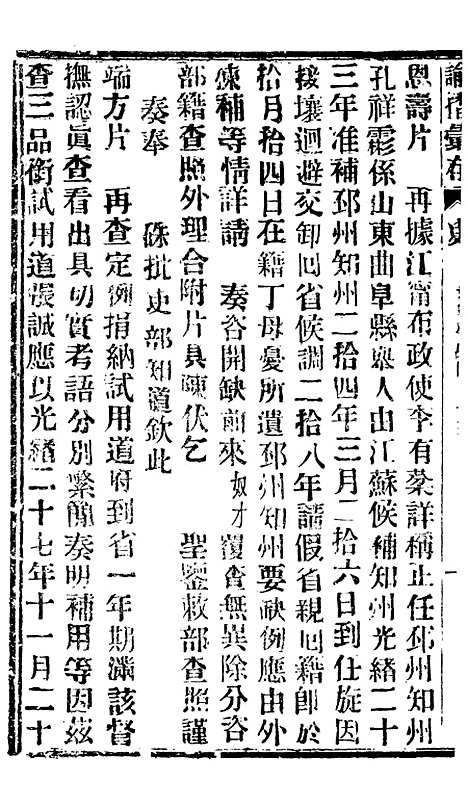 諭摺彙存
恩壽片　再據江甯布政使李有棻詳稱正任邳州知州
孔祥霖係山東曲阜縣舉人由江蘇候補知州光緒二十
三年准補邳州知州二拾四年三月二拾六日到任旋因
接壤迴避交卸回省候調二拾八年請假省親回籍卽於
拾月拾四日在籍丁母憂所遺邳州知州要缺例應由外
揀補等情詳請　奏咨開缺前來奴才覆查無異除分咨
部籍查照外理合附片具陳伏乞　聖鑒敕部查照謹
奏奉　硃批吏部知道欽此
端方片　再查定例捐納試用道府到省一年期滿該督
撫認眞查看出具切實考語分別繁簡奏明補用等因茲
查三品銜試用道張誠應以光緒二十七年十一月二十